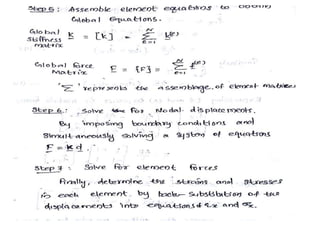 Step 5: Assemble element equations to obtain
Global Equations.
Global Stiffness Matrix K = [K] = N Σ e=1 k(e)
Global Force Matrix F = {F} = N Σ e=1 f(e)
'Σ' represents the assemblage of element matrices
Step 6: Solve for Nodal displacements.
By imposing boundary conditions and
Simultaneously solving a system of equations
F = K d.
Step 7: Solve for element forces
Finally, determine the strains and stresses
in each element by back-substitution of the
displacements into equations of εx and σx.